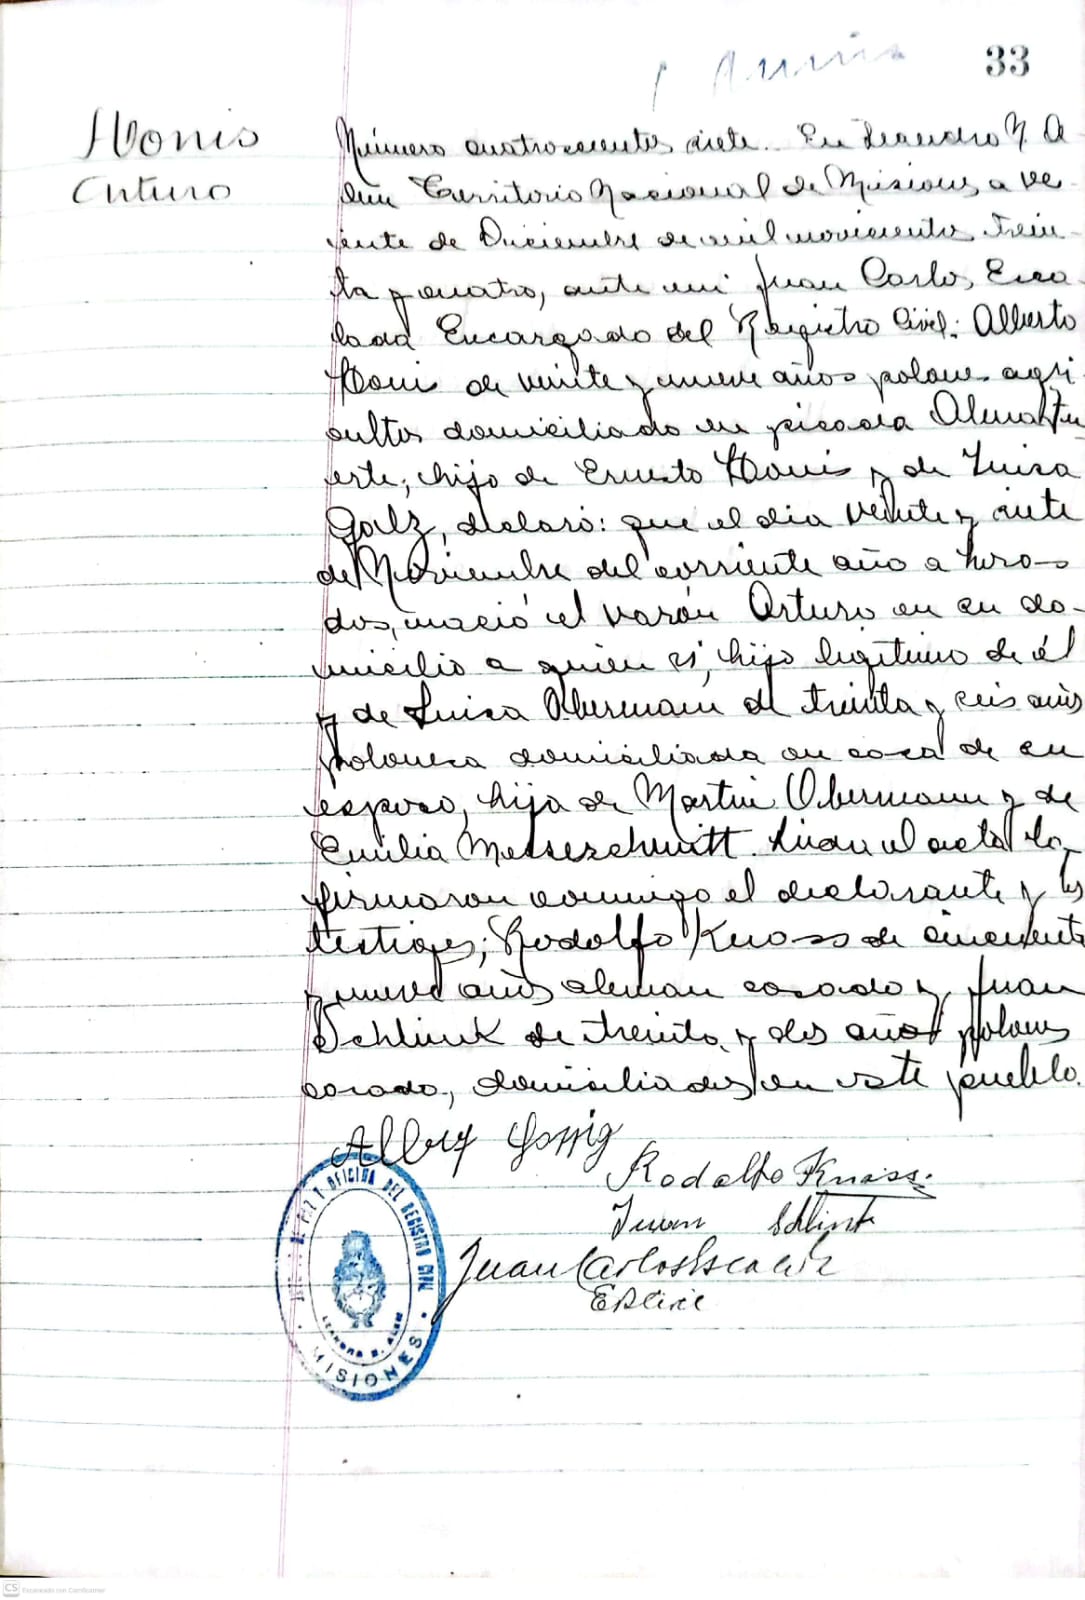 33
Honis
Arturo
Número cuatrocientos siete. En Leandro N. A-
lém Territorio Nacional de Misiones a ve-
inte de Diciembre de mil novecientos trein-
ta y cuatro, ante mi Juan Carlos Esca-
lada Encargado del Registro Civil: Alberto
Honis de veinte y nueve años polones agri-
cultor domiciliado en picada Almafu-
erte, hijo de Ernesto Honis y de Luisa
Golz, declaró: que el dia veinte y siete
de Noviembre del corriente año a horas
dos, nació el varón Arturo en su do-
micilio a quien vi, hijo legitimo de él
y de Luisa Obermann de treinta y seis años
polonesa domiciliada en casa de su
esposo, hija de Martin Obermann y de
Emilia Messerschmitt. Leida el acta la
firmaron conmigo el declarante y los
testigos; Rodolfo Knoss de cincuenta
y nueve años aleman casado y Juan
Schlink de treinta y dos años polones
casado, domiciliados en este pueblo.
Rodolfo Knoss
Juan Schlink
Juan Carlos Escalada
OFICINA DEL REGISTRO CIVIL
LEANDRO N. ALEM
MISIONES
CS Escaneado con CamScanner